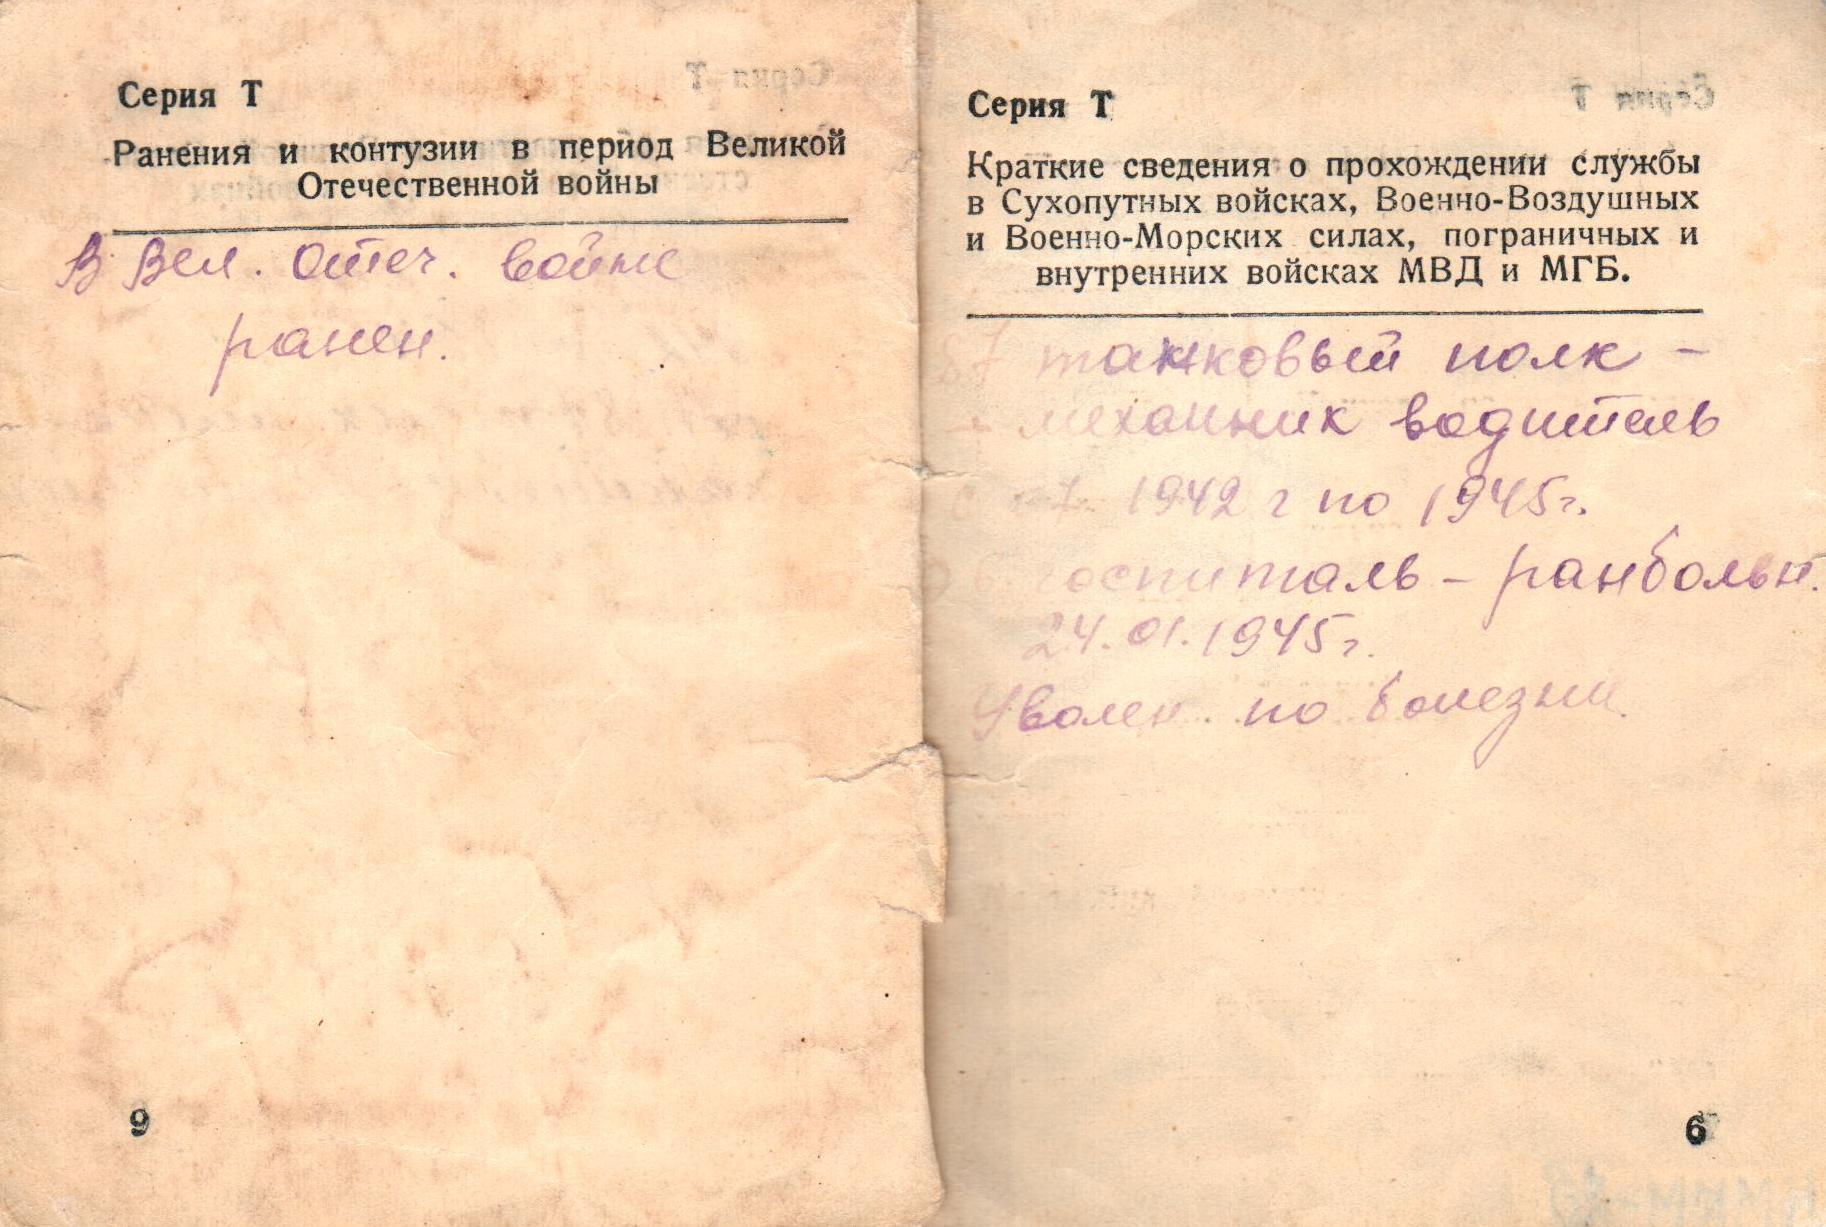 Серия Т
Ранения и контузии в период Великой
Отечественной войны
В Вел. Отеч. войне
ранен.
9
Серия Т
Краткие сведения о прохождении службы
в Сухопутных войсках, Военно-Воздушных
и Военно-Морских силах, пограничных и
внутренних войсках МВД и МГБ.
87 танковый полк -
- механик водитель
1942 г по 1945г.
госпиталь - ранбольн.
24.01.1945г.
Уволен по болезни.
6